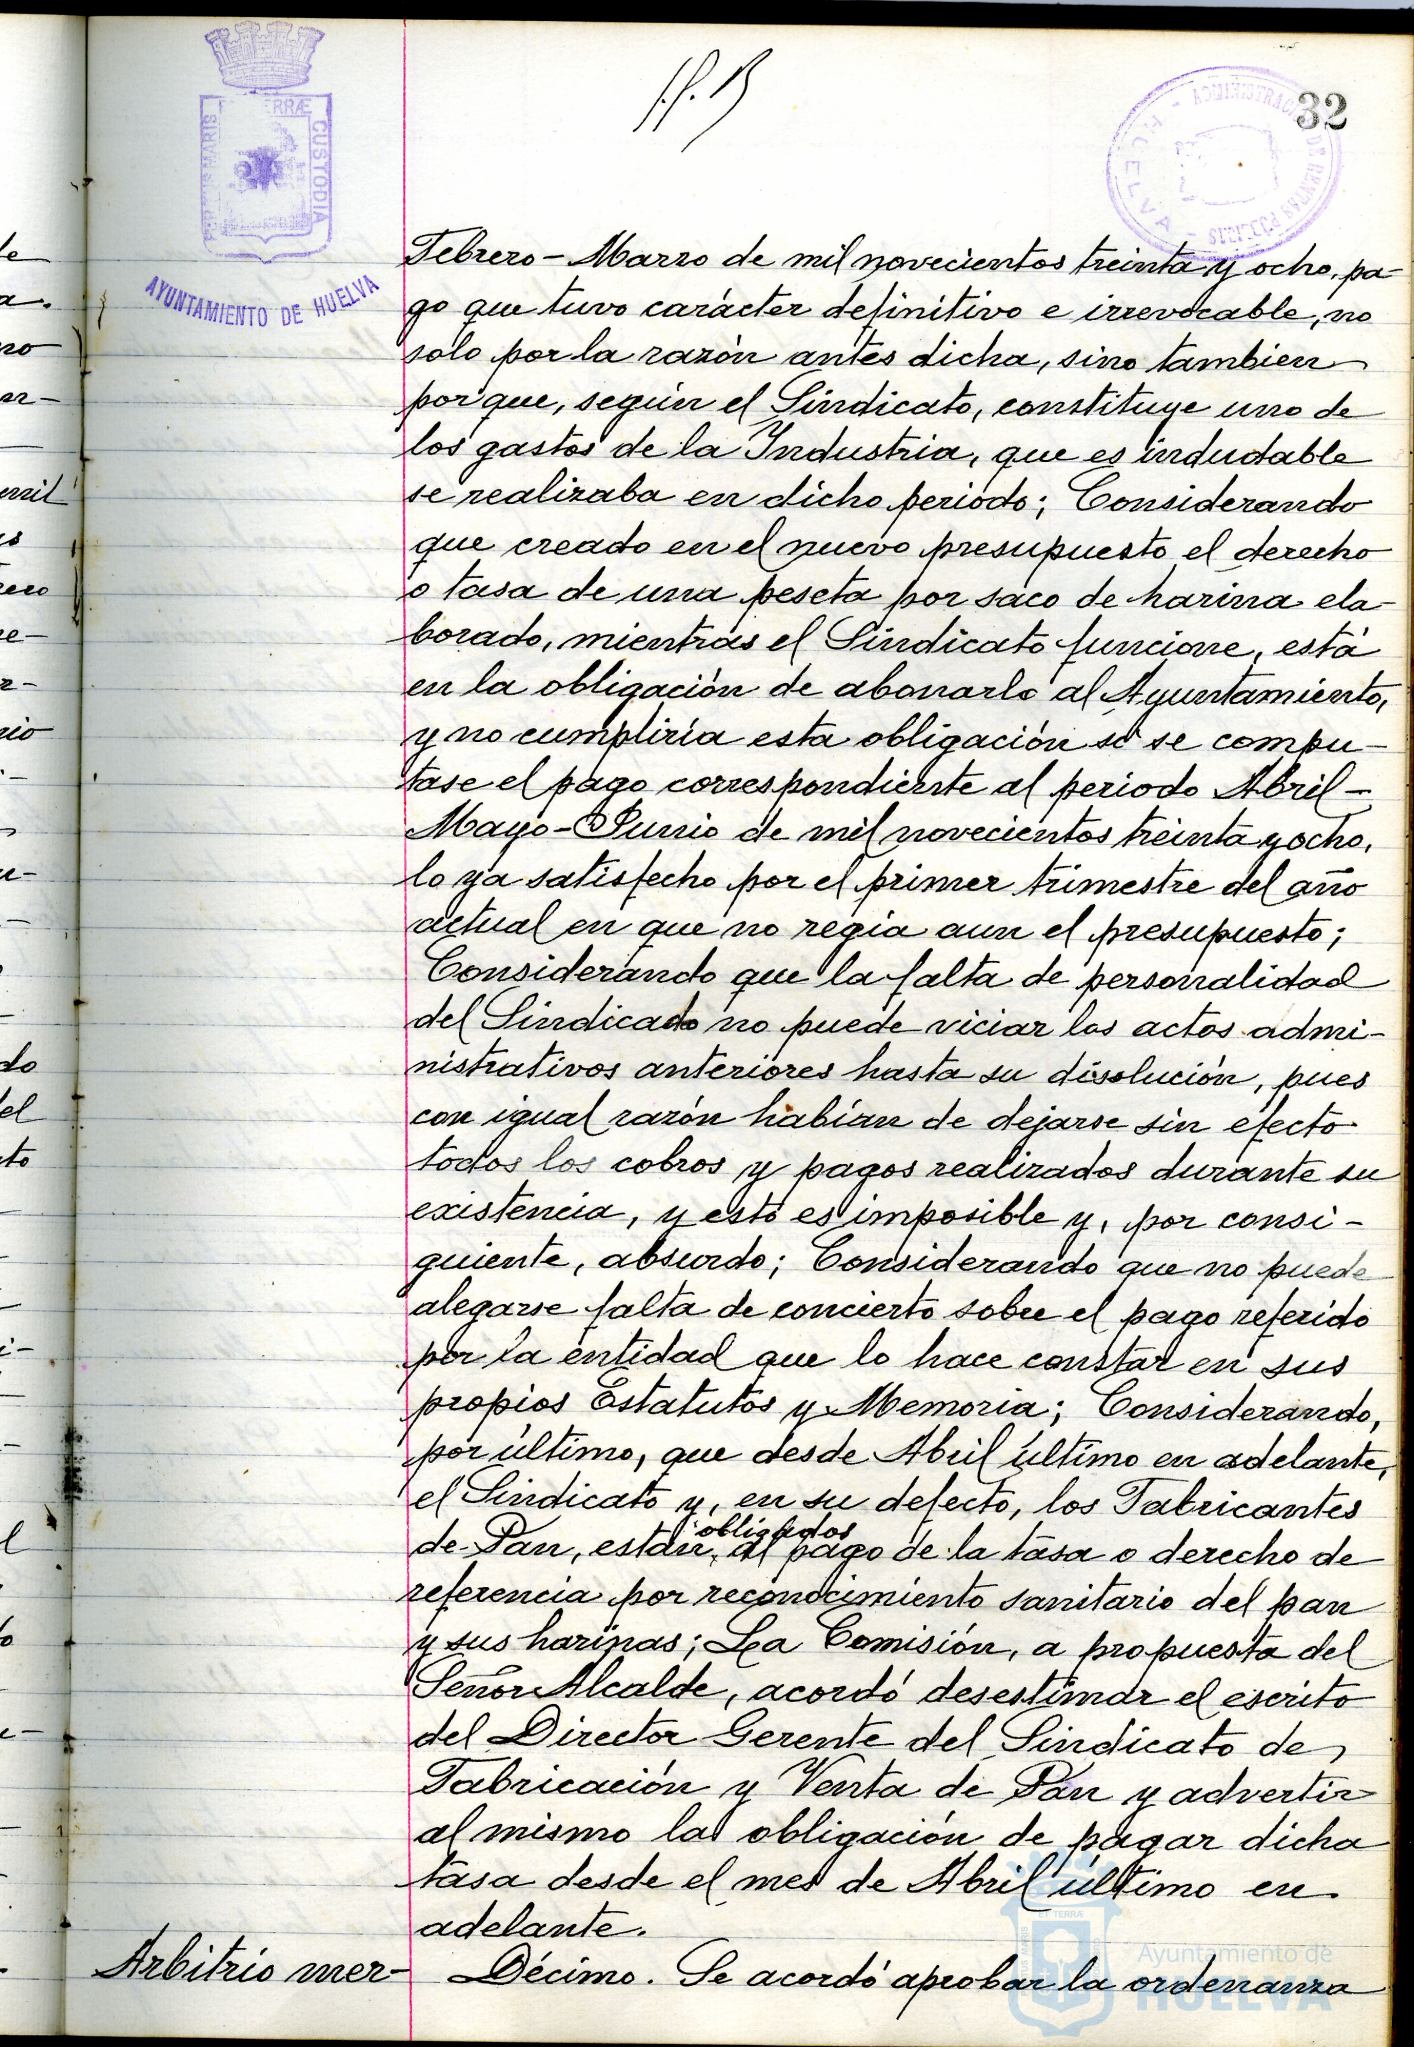 32
PORTUS MARIS ET TERRÆ CUSTODIA
AYUNTAMIENTO DE HUELVA
ADMINISTRACION DE RENTAS PUBLICAS
HUELVA
Febrero - Marzo de mil novecientos treinta y ocho, pa-
go que tuvo carácter definitivo e irrevocable, no
solo por la razón antes dicha, sino tambien
porque, según el Sindicato, constituye uno de
los gastos de la Industria, que es indudable
se realizaba en dicho periodo; Considerando
que creado en el nuevo presupuesto el derecho
o tasa de una peseta por saco de harina ela-
borado, mientras el Sindicato funcione, está
en la obligación de abonarlo al Ayuntamiento,
y no cumpliría esta obligación si se compu-
tase el pago correspondiente al periodo Abril -
Mayo - Junio de mil novecientos treinta y ocho,
lo ya satisfecho por el primer trimestre del año
actual en que no regia aun el presupuesto;
Considerando que la falta de personalidad
del Sindicado no puede viciar los actos admi-
nistrativos anteriores hasta su disolución, pues
con igual razón habían de dejarse sin efecto
todos los cobros y pagos realizados durante su
existencia, y esto es imposible y, por consi-
guiente, absurdo; Considerando que no puede
alegarse falta de concierto sobre el pago referido
por la entidad que lo hace constar en sus
propios Estatutos y Memoria; Considerando,
por último, que desde Abril último en adelante,
el Sindicato y, en su defecto, los Fabricantes
obligados
de Pan, están, al pago de la tasa o derecho de
referencia por reconocimiento sanitario del pan
y sus harinas; La Comisión, a propuesta del
Señor Alcalde, acordó desestimar el escrito
del Director Gerente del Sindicato de
Fabricación y Venta de Pan y advertir
al mismo la obligación de pagar dicha
tasa desde el mes de Abril último en
adelante.
Arbitrio mer- Décimo. Se acordó aprobar la ordenanza
Ayuntamiento de
HUELVA